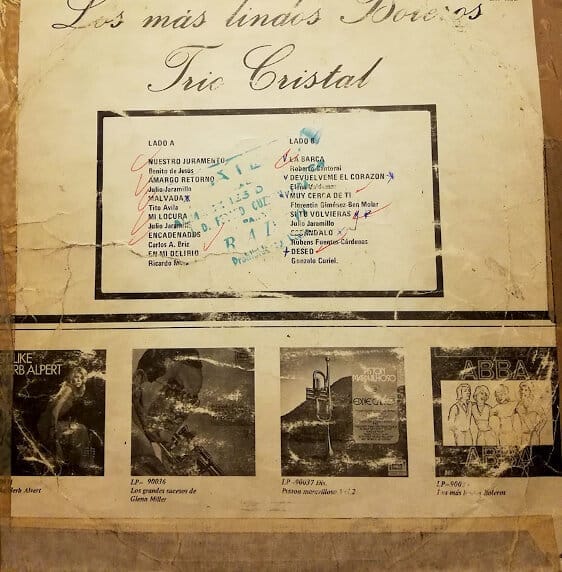 Los más lindos Boleros
Trio Cristal
LADO A
NUESTRO JURAMENTO
Benito de Jesús
AMARGO RETORNO
Julio Jaramillo
MALVADA
Tito Avila
MI LOCURA
Julio Jaramillo
ENCADENADOS
Carlos A. Briz
EN MI DELIRIO
Ricardo
LADO B
LA BARCA
Roberto Cantoral
DEVUELVEME EL CORAZON
MUY CERCA DE TI
Florentin Giménez-Ben Molar
SI TU VOLVIERAS
Julio Jaramillo
ESCANDALO
Rubens Fuentes-Cárdenas
DESEO
Gonzalo Curiel.
LIKE
HERB ALPERT
PISTON
MARAVILLOSO
ABBA
ABBA
Herb Alvert
LP- 90036
Los grandes sucesos de
Glenn Miller
LP -90037 Dis.
Piston maravilloso 1 y 2
LP-
Los más lindos Boleros